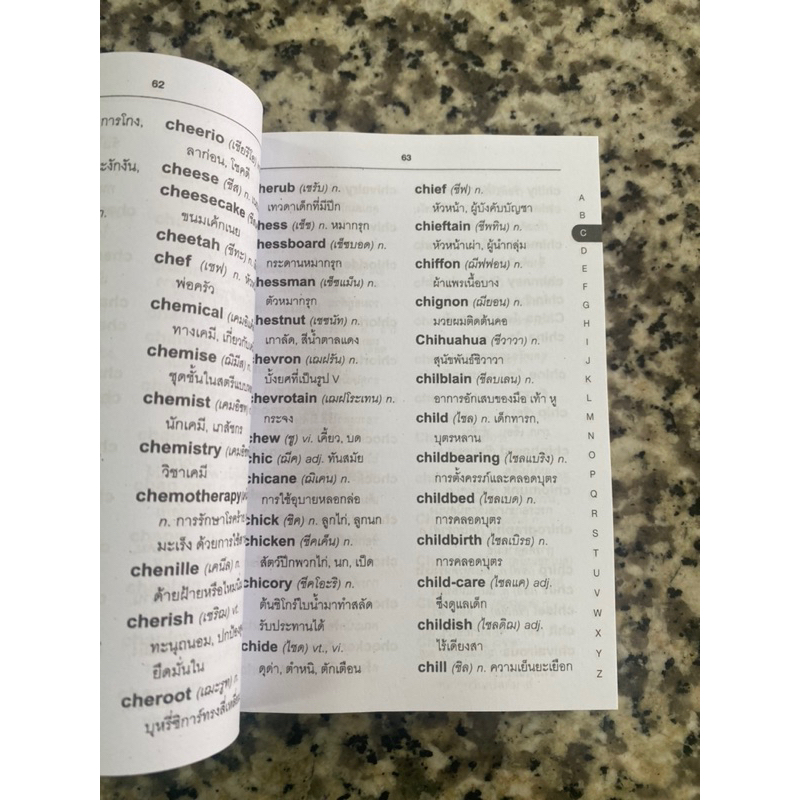 62
การโกง,
ะงักงัน,
n.
cheerio (เชียริโอ)
ลาก่อน, โชคดี
cheese (ชีส) n.
cheesecake
ขนมเค้กเนย
cheetah (ชีทะ) n.
chef (เชฟ) n. หัว
พ่อครัว
chemical
ทางเคมี, เกี่ยวกับ
chemise (ฌิมีส)
ชุดชั้นในสตรีแบบ
chemist (เคมอิซท)
นักเคมี, เภสัชกร
chemistry
วิชาเคมี
chemotherapy
n. การรักษาโรคร้าย
มะเร็ง ด้วยการใช้
chenille (เคนีล) n.
ด้ายฝ้ายหรือไหม
cherish (เชริฌ) vt.
ทะนุถนอม, ปกป้อง
ยึดมั่นใน
cheroot (เฌะรูท) n.
บุหรี่ซิการ์ทรงสี่เหลี่ยม
63
herub (เชรับ) n.
เทวดาเด็กที่มีปีก
hess (เช็ซ) n. หมากรุก
hessboard (เช็ซบอด) n.
กระดานหมากรุก
hessman (เช็ซแม็น) n.
ตัวหมากรุก
hestnut (เชซนัท) n.
เกาลัด, สีน้ำตาลแดง
hevron (เฌฝรัน) n.
บั้งยศที่เป็นรูป V
hevrotain (เฌฝโระเทน) n.
กระจง
hew (ชู) vi. เคี้ยว, บด
hic (ฌีค) adj. ทันสมัย
hicane (ฌิเคน) n.
การใช้อุบายหลอกล่อ
hick (ชิค) n. ลูกไก่, ลูกนก
hicken (ชิคเค็น) n.
สัตว์ปีกพวกไก่, นก, เป็ด
hicory (ชีคโอะริ) n.
ต้นชิโกรี่ใบน้ำมาทำสลัด
รับประทานได้
hide (ไชด) vt., vi.
ดุด่า, ตำหนิ, ตักเตือน
chief (ชีฟ) n.
หัวหน้า, ผู้บังคับบัญชา
chieftain (ชีพทิน) n.
หัวหน้าเผ่า, ผู้นำกลุ่ม
chiffon (ฌีฟฟอน) n.
ผ้าแพรเนื้อบาง
chignon (ฌียอน) n.
มวยผมติดต้นคอ
Chihuahua (ชีวาวา) n.
สุนัขพันธุ์ชิวาวา
chilblain (ชีลบเลน) n.
อาการอักเสบของมือ เท้า หู
child (ไชล) n. เด็กทารก,
บุตรหลาน
childbearing (ไชลแบริง) n.
การตั้งครรภ์และคลอดบุตร
childbed (ไชลเบด) n.
การคลอดบุตร
childbirth (ไชลเบิรธ) n.
การคลอดบุตร
child-care (ไชลแค) adj.
ซึ่งดูแลเด็ก
childish (ไชลดิฌ) adj.
ไร้เดียงสา
chill (ชิล) n. ความเย็นยะเยือก
A
B
C
D
E
F
G
H
I
J
K
L
M
N
O
P
Q
R
S
T
U
V
W
X
Y
Z